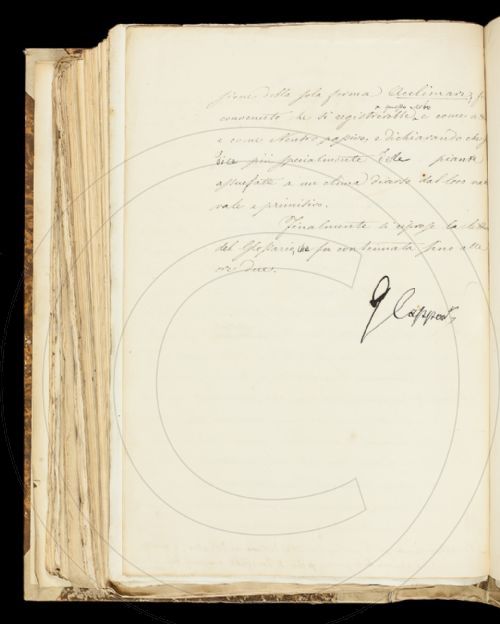 sione della sola forma Acclimare, fu
a questo verbo
convenuto che si registrerebbe e come at
e come Neutro passivo, e dichiarando che
dice più specialmente delle piante
assuefatte a un clima diverso dal loro na
vale e primitivo.
Finalmente si riprese la
del Glossario, che fu continuata fino alle
ore due.
G Capponi